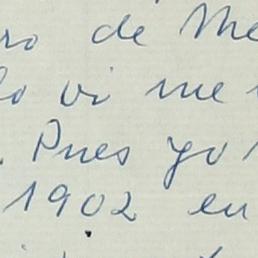 ro de Me
lo vi me
. Pues yo
1902 en